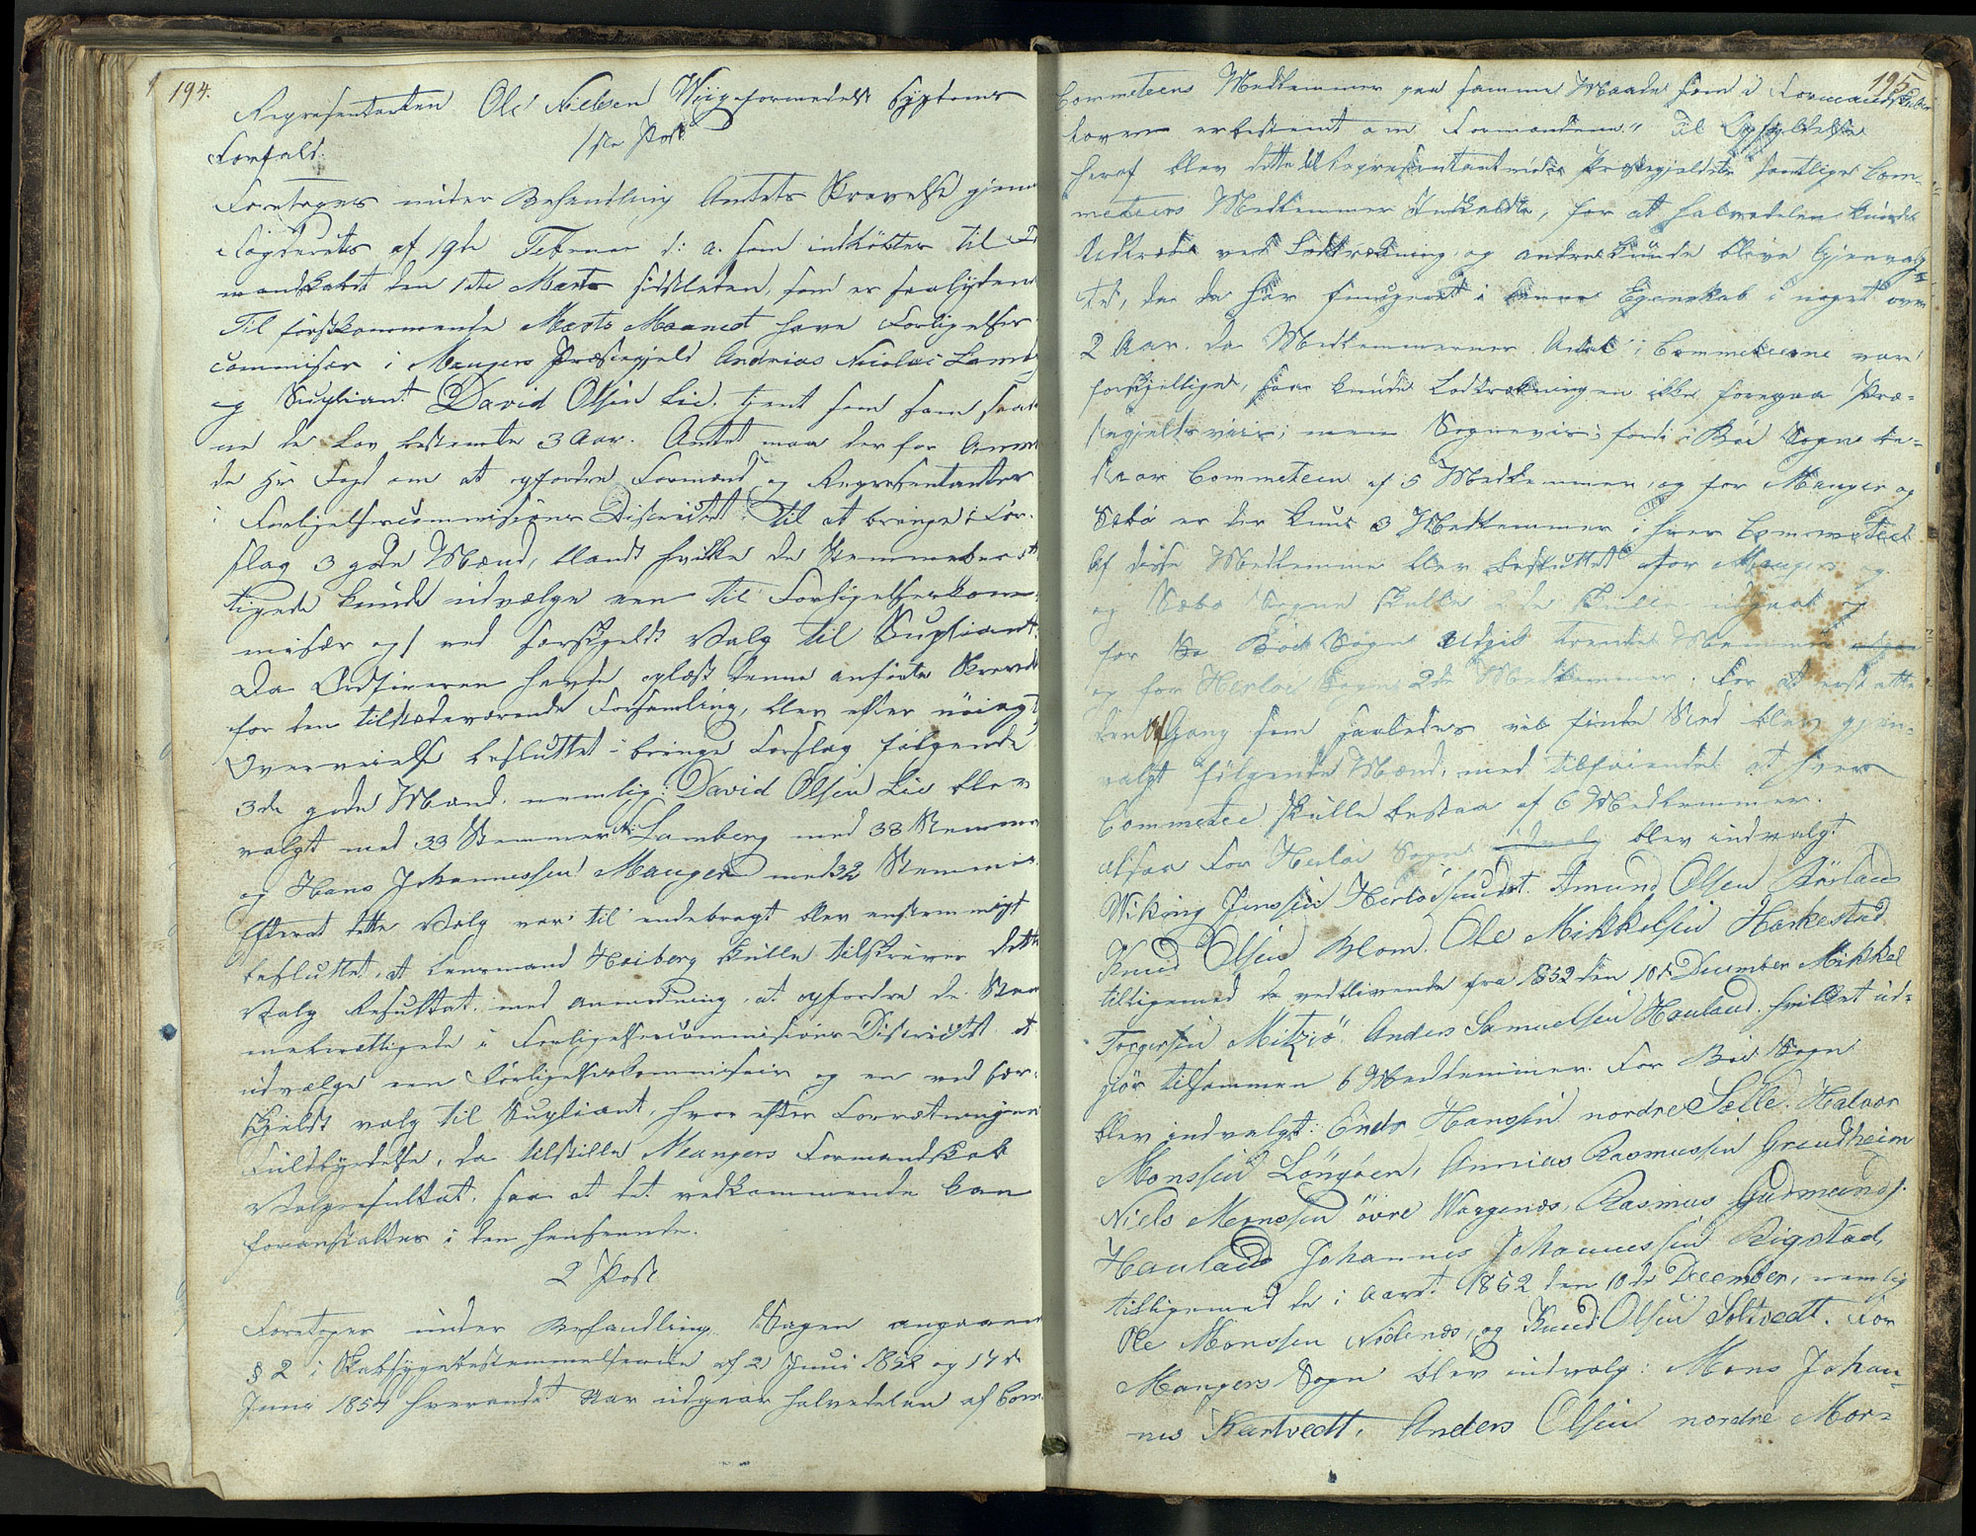 194.
Representanten Ole Nielsen Wiig formedelst Sygdoms
Forfald.
1ste Post
Foretoges under Behandling Amtets Skrivelse gjen-
Fogderiets af 19de Februar d: a. som indkom til For
mandskabet den 1ste Marts sidstleden, som er saalydende
Til förstkommende Marts Maaned have Forligelses
commisær i Mangers Præstegjeld Andreas Nicolai Lamberg
og Supliant David Olsen Lie, tjent som saa-
ne de Lov bestemte 3 Aar. Amtet maa derfor Anmo
de Hr Fogd om at opfordre Formænd og Representanter
i Forligelsescommissions Districtet til at bringe i For-
slag 3 gode Mænd, blandt hvilke de Stemmeberet
tigede kunde udvælge een til Forligelseskom-
misær og ved særskildt Valg til Supliant.
Da Ordföreren havde oplæst denne anförte Skrivelse
for den tilstædeværende Forsamling, blev efter nöiagt
Overveielse besluttet i bringe Forslag fölgende
3de gode Mænd, nemlig: David Olsen Lie blev
valgt med 33 Stemmer Lamberg med 33 Stemmer
og Hans Johannessen Manger med 32 Stemmer.
Efterat dette Valg var til endebragt blev enstemmigt
besluttet, at Lensmand Heiberg skulle tilskriver dette
Valg Resultat, med anmodning, at opfordre de Stem
meberettigede i Forligelsescommissions Districtet at
udvælge een Forligelseskommissair og en ved sær-
skildt valg til Supliant, hvor efter Forretningen
Fuldbyrdelse, da tilstille Mangers Formandskab
Valgresultat, saa at det vedkommende kan
foranstaltes i den henseende.
2 Post
Foretoges under Behandling Sagen angaaende
§ 2 i Skabsygebestemmelserne af 2 Juni 1852 og 14de
Juni 1854 hverandet Aar udgaar halvedelen af Com-
195
Commeteens Medlemmer paa samme Maade som i Formandskabs
loven er bestemt om Formændene." Til Opfyldelse
heraf blev dette til Representantmöde Præstegjeldets samtlige Com-
meteens Medlemmer Indkaldte, for at halvedelen kunde
Udtræde ved Lodtrækning, og andre kunde blive Gjenvalg-
te, da de har fungeret i denne Egenskab i noget over
2 Aar. Da Medlemmernes Antal i Commeteerne var
forskjellige, saa kunde Lodtrækningen ikke foregaa Præ-
stegjeldsviis; men Sogneviis; fordi i Böe Sogn be-
staar Commeteen af 5 Medlemmer, og for Manger og
Sæbö er der kuns 3 Medlemmer i hver Commeteen
Af disse Medlemmer blev besluttet for Mangers og
og Sæbö Sogne skulle 2de skulle udgaae og
for Böe Sogn Udgik trende Stemmer
og for Herlöe Sogn 2de Medlemmer. For at erstatte
den Afgang som saaledes vil finde Sted blev gjen-
valgt fölgende Mænd, med tilföiende at hver
Commetee skulle bestaa af 6 Medlemmer.
altsaa For Herlöe Sogn blev indvalgt
Wiking Jensen Herlöesundet. Amund Olsen
Knud Olsen Blom. Ole Mikkelsen Harkestad
tilligemed de vedblivende fra 1852 den 10de December Mikkel
Torgersen Mitzjö. Anders Samuelsen Hauland. hvilket ud-
gjör tilsammen 6 Medlemmer. For Böe Sogn
blev indvalgt: Endr Hansen nordre Selle, Halvor
Monssen Löngöen, Annias Rasmussen Grendheim
Niels Monssen övre Wargenæs, Rasmus Gudmunds.
Hauland Johannes Johannessen Rigstad,
tilligemed de i Aaret 1852 den 10de December, nemlig
Ole Monssen Nödenæs, og Knud Olsen Soltvedt. For
Mangers Sogn blev indvalg: Mons Johan-
nes Kartvedt, Anders Olsen nordre Mor-